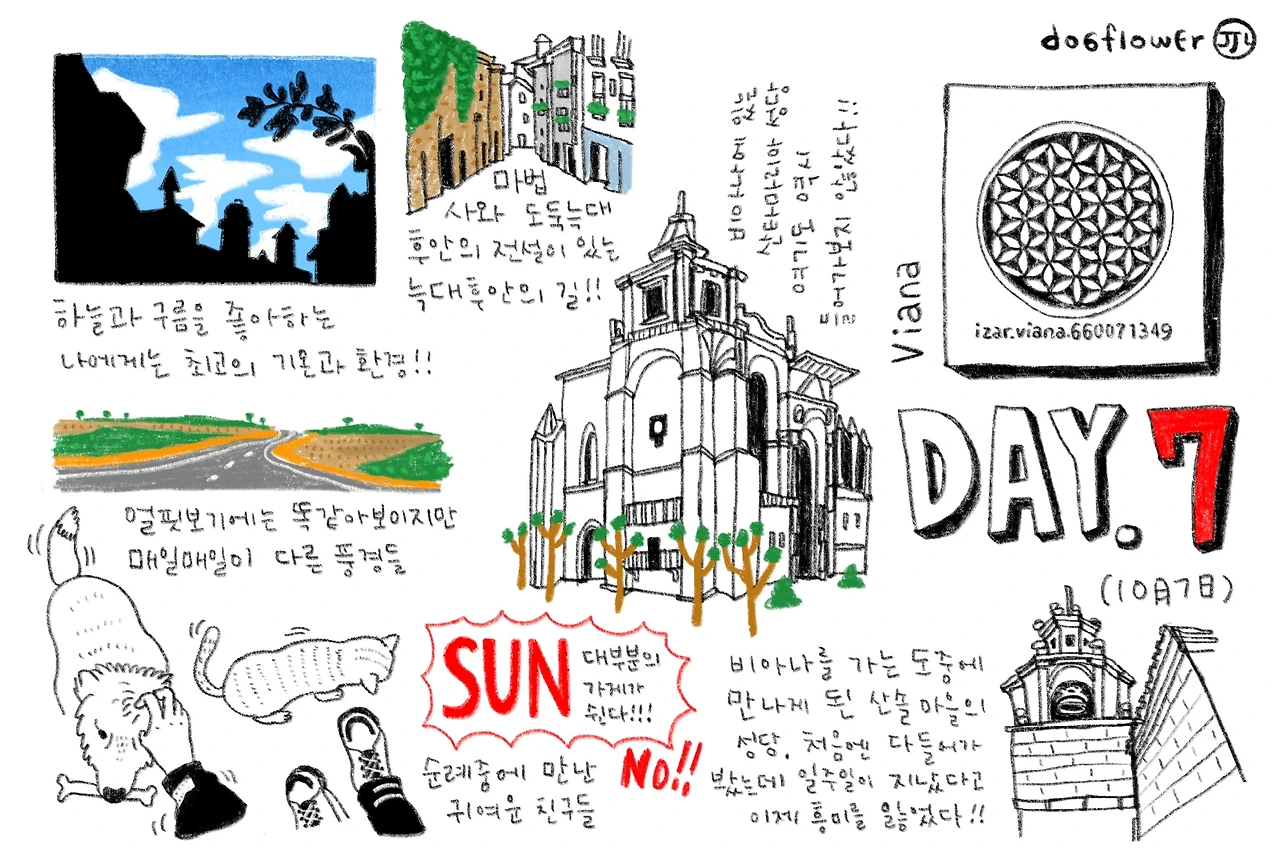 dogflower JJL
하늘과 구름을 좋아하는
나에게는 최고의 기온과 환경!!
마법
사와 도둑늑대
후안의 전설이 있는
늑대후안의 길!!
비아나에 있는
산타마리아 성당
여기도 역시
들어가보지 않았다!!
Viana
izar.viana.660071349
DAY.7
(10月7日)
얼핏보기에는 똑같아보이지만
매일매일이 다른 풍경들
SUN
대부분의
가게가
쉰다!!!
NO!!
순례중에 만난
귀여운 친구들
비아나를 가는 도중에
만나게 된 산솔마을의
성당. 처음엔 다들어가
봤는데 일주일이 지났다고
이제 흥미를 잃었다!!